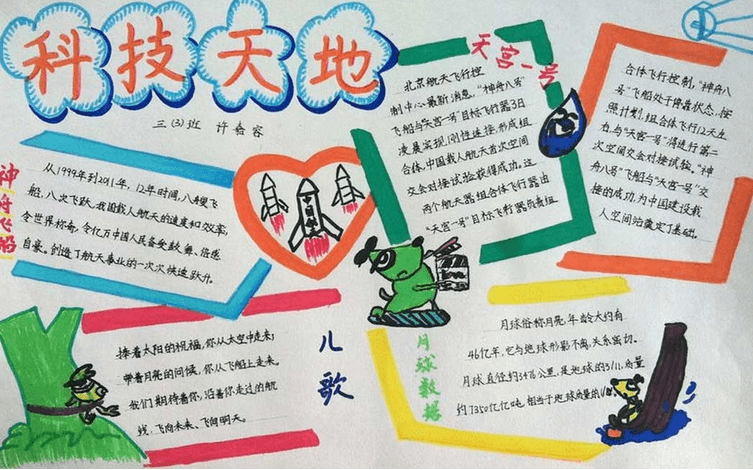 科技天地
三(3)班 许睿容
神舟飞船
从1999年到2011年，12年时间，八艘飞
船，八次飞跃，我国载人航天的速度和效率，
令世界称奇，令亿万中国人民备受鼓舞、倍感
自豪，创造了航天事业的一次次快速跃升。
天宫一号
北京航天飞行控
制中心最新消息，"神舟八号"
飞船与"天宫一号"目标飞行器3日
凌晨实现刚性连接，形成组
合体，中国载人航天首次空间
交会对接试验获得成功。这
两个航天器组合体飞行器由
"天宫一号"目标飞行器负责组
合体飞行控制，"神舟八
号"飞船处于停靠状态，按
照计划，组合体飞行12天左
右，与"天宫一号"将进行第二
次空间交会对接试验。"神
舟八号"飞船与"天宫一号"交
接的成功，为中国建设载
人空间站奠定了基础。
儿歌
捧着太阳的祝福，你从太空中走来；
带着月亮的问候，你从飞船上走来。
我们期待着你，沿着你走过的航
线，飞向未来、飞向明天。
月球数据
月球俗称月亮，年龄大约有
46亿年，它与地球形影不离，关系密切。
月球直径约3476公里，是地球的3/11，质量
约7350亿亿吨，相当于地球质量的1/